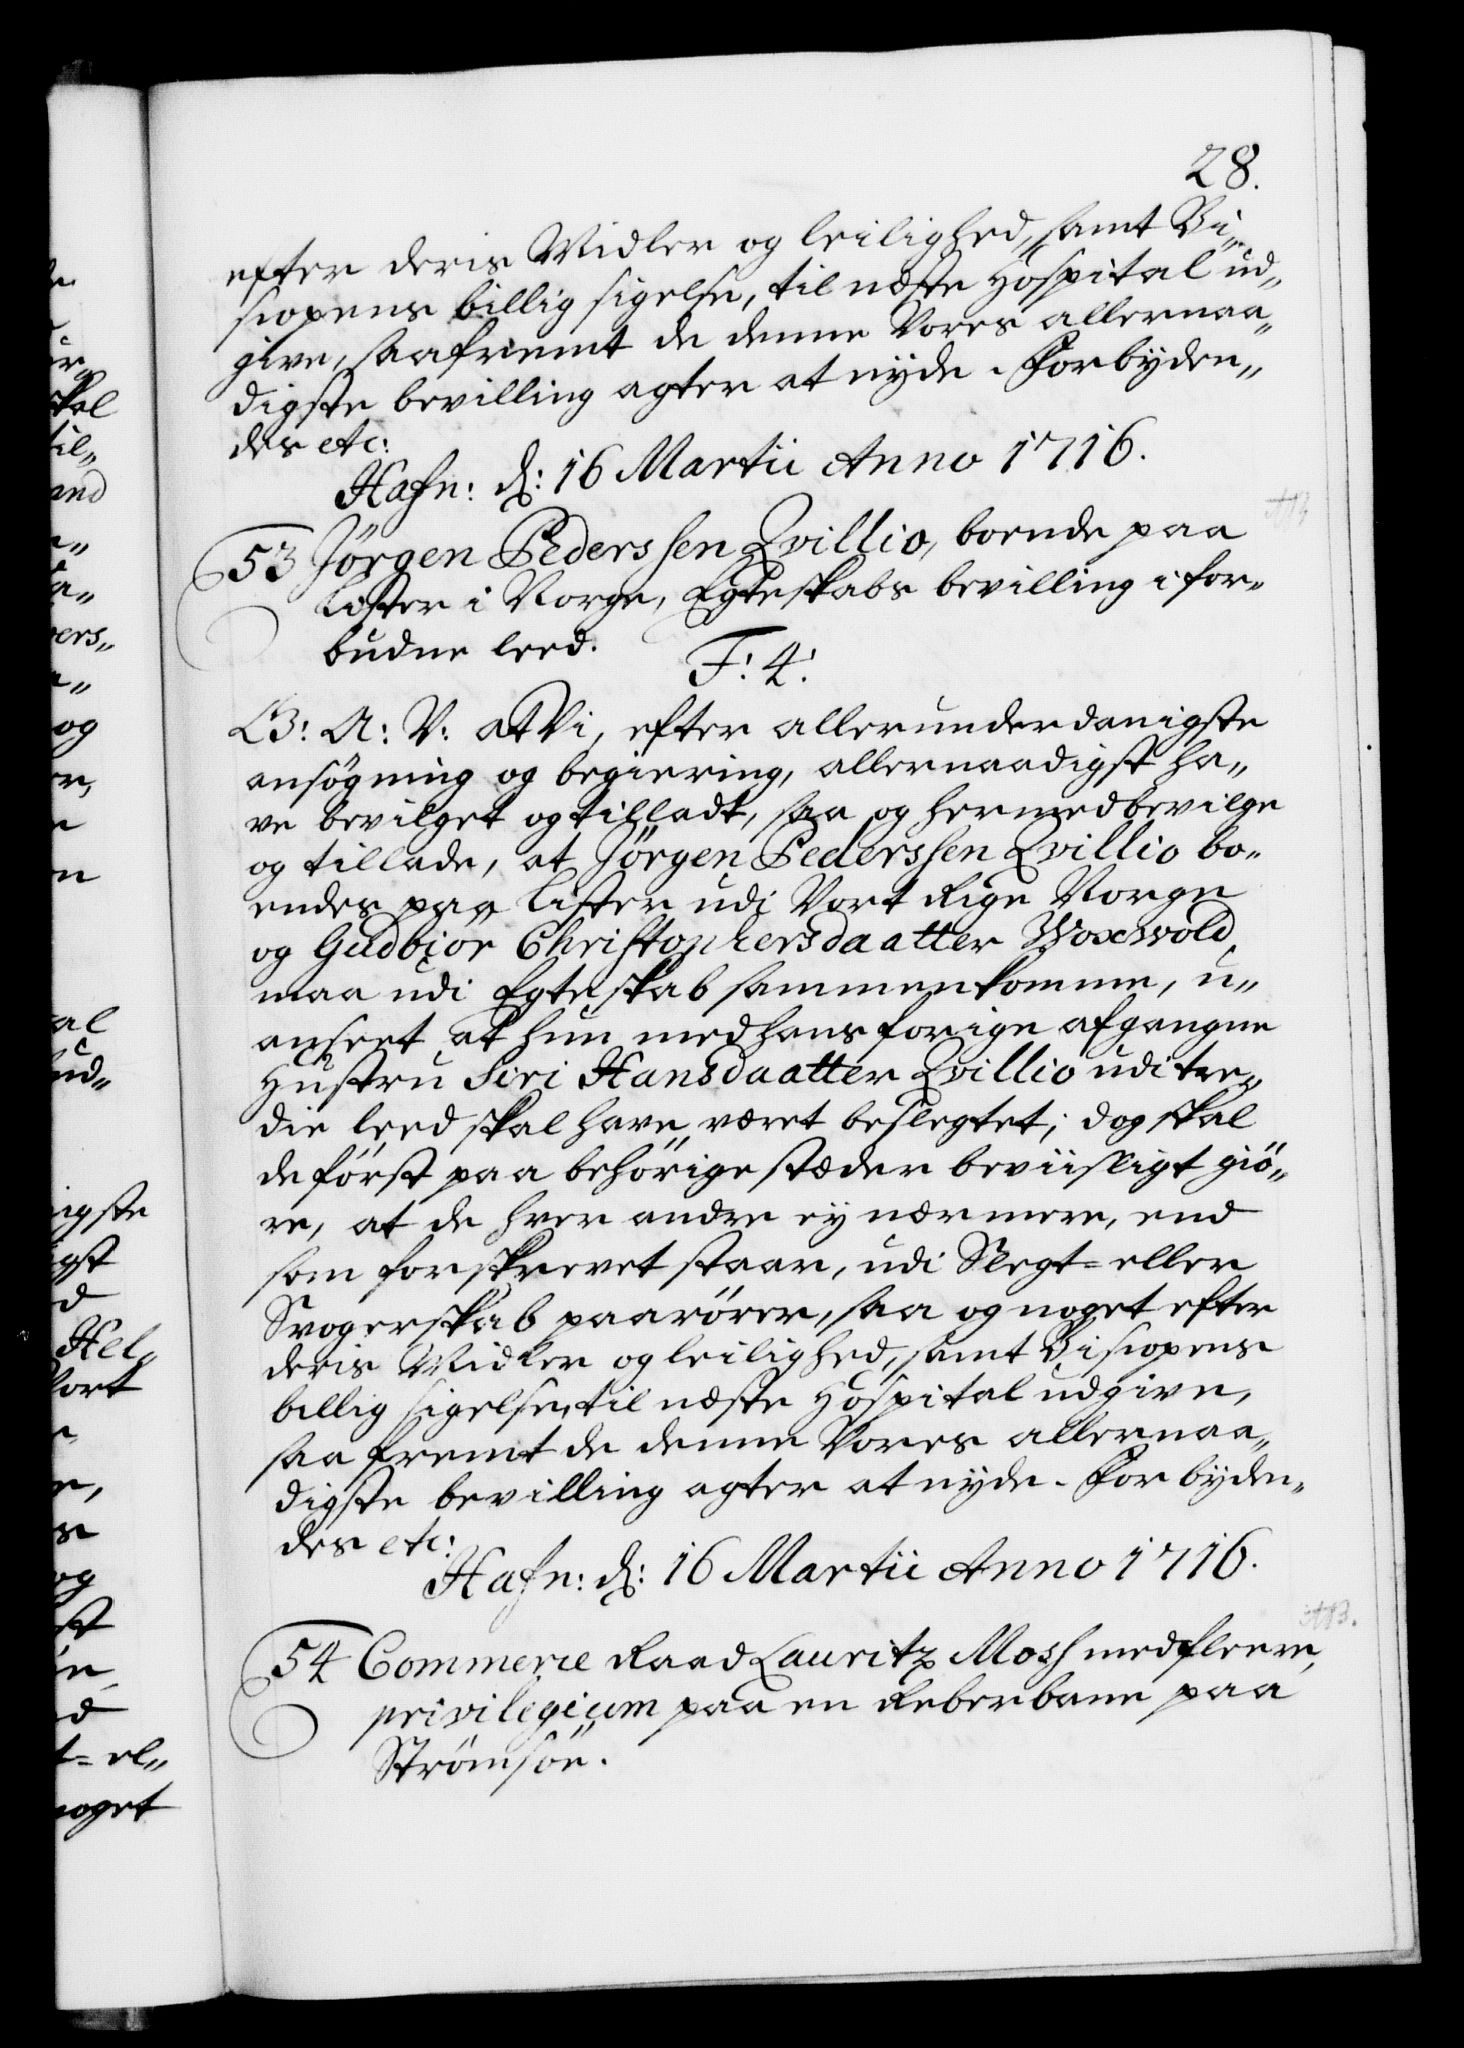 28.
efter deris Midler og leilighed, samt Bi„
scopens billig sigelse, til næste Hospital ud„
give, saafremt de denne Vores allernaa„
digste bevilling agter at nyde. Forbyden„
des etc:
Hafn: d: 16 Martii Anno 1716.
53 Jörgen Pederssen Qvillio, boende paa
Lister i Norge, Egteskabs bevilling i for„
budne leed.
F: 4:
G: A: V: at Vi, efter allerunderdanigste
ansögning og begiering, allernaadigst ha„
ve bevilget og tilladt, saa og hermed bevilge
og tillade, at Jörgen Pederssen Qvillio bo„
endes paa Lister udi Vort Rige Norge
og Gudbiör Christophersdaatter Woxwold,
maa udi Egteskab sammenkomme, u„
anseet at hun med hans forige afgangne
Hustru Siri Hansdaatter Qvillio udi tre„
die leed skal have været beslegtet; dog skal
de först paa behörige stæder beviisligt giö„
re, at de hver andre ey nærmere, end
som forskrevet staar, udi Slegt= eller
Svogerskab paarörer, saa og noget efter
deris Midler og leilighed, samt Biscopens
billig sigelse, til næste Hospital udgive,
saafremt de denne Vores allernaa„
digste bevilling agter at nyde. Forbyden„
des etc:
Hafn: d: 16 Martii Anno 1716.
54 Commerce Raad Lauritz Mosh med fleere,
privilegium paa en Reberbane paa
Strömsöe.